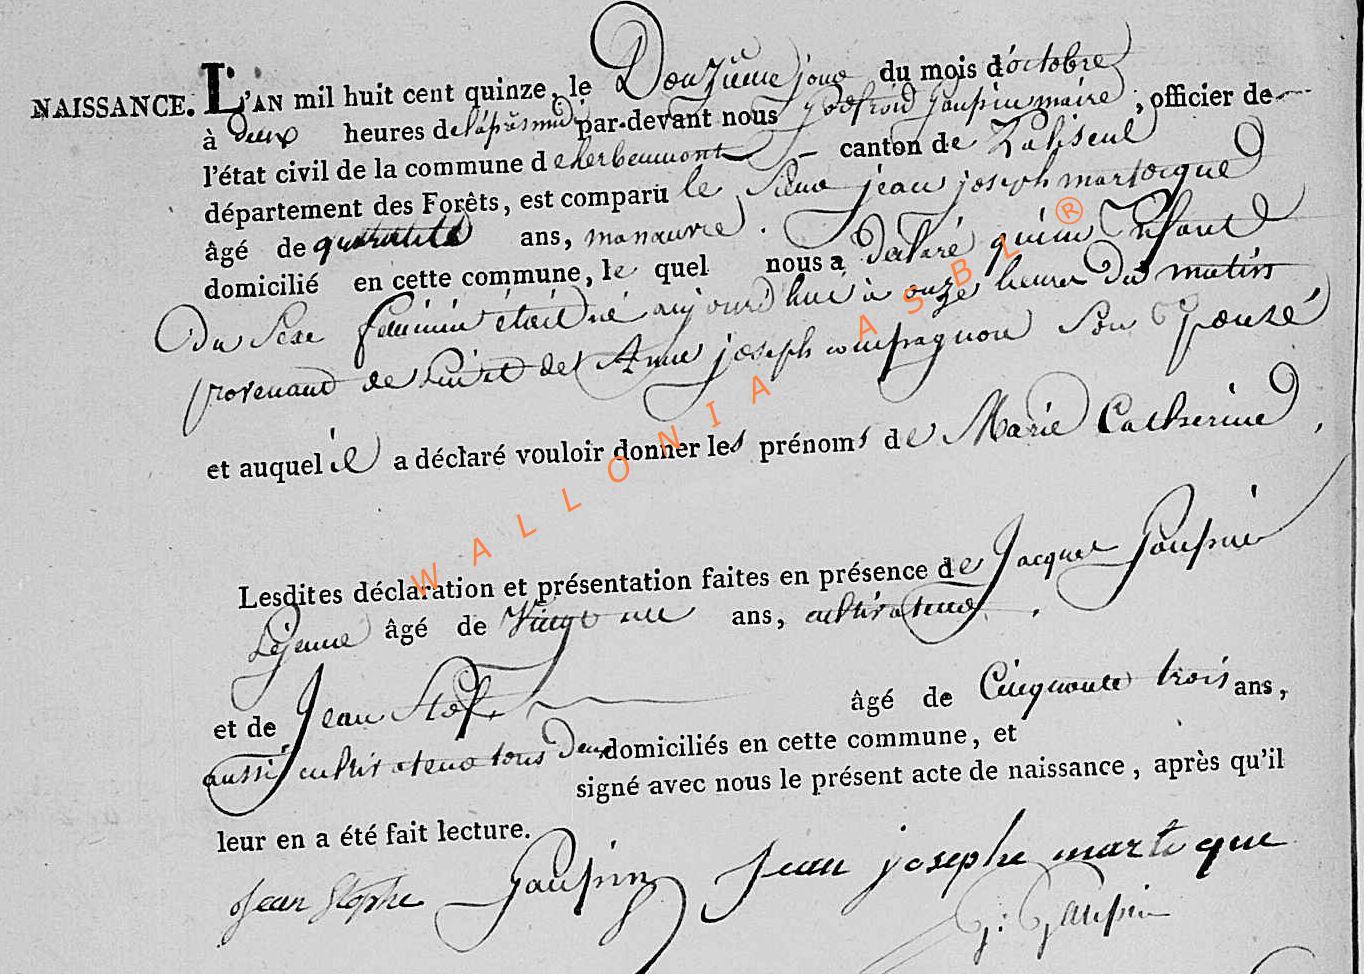 NAISSANCE. L'AN mil huit cent quinze, le Douzieme jour du mois d'octobre
à deux heures de l'après midi par-devant nous Godfroid Gaupin maire, officier de
l'état civil de la commune de herbeumont canton de Paliseul
département des Forêts, est comparu le Sieur jean joseph martocque
âgé de quarante ans, manœuvre.
domicilié en cette commune, le quel nous a declaré qu'un Enfant
Du Sexe feminin étoit né aujourd'hui à onze heures Du matin
provenant de lui et de Anne joseph compagnon Son Epouse
et auquel il a déclaré vouloir donner les prénoms de Marie Catherine,
Lesdites déclaration et présentation faites en présence de Jacque Gaupin
Lejeune âgé de Vingt un ans, cultivateur.
et de Jean Stof âgé de Cinquante trois ans,
aussi cultivateur tous Deux domiciliés en cette commune, et
signé avec nous le présent acte de naissance, après qu'il
leur en a été fait lecture.
Jean Stophe Gaupin Jean josephe martique
G: Gaupin
WALLONIA ASBL ®